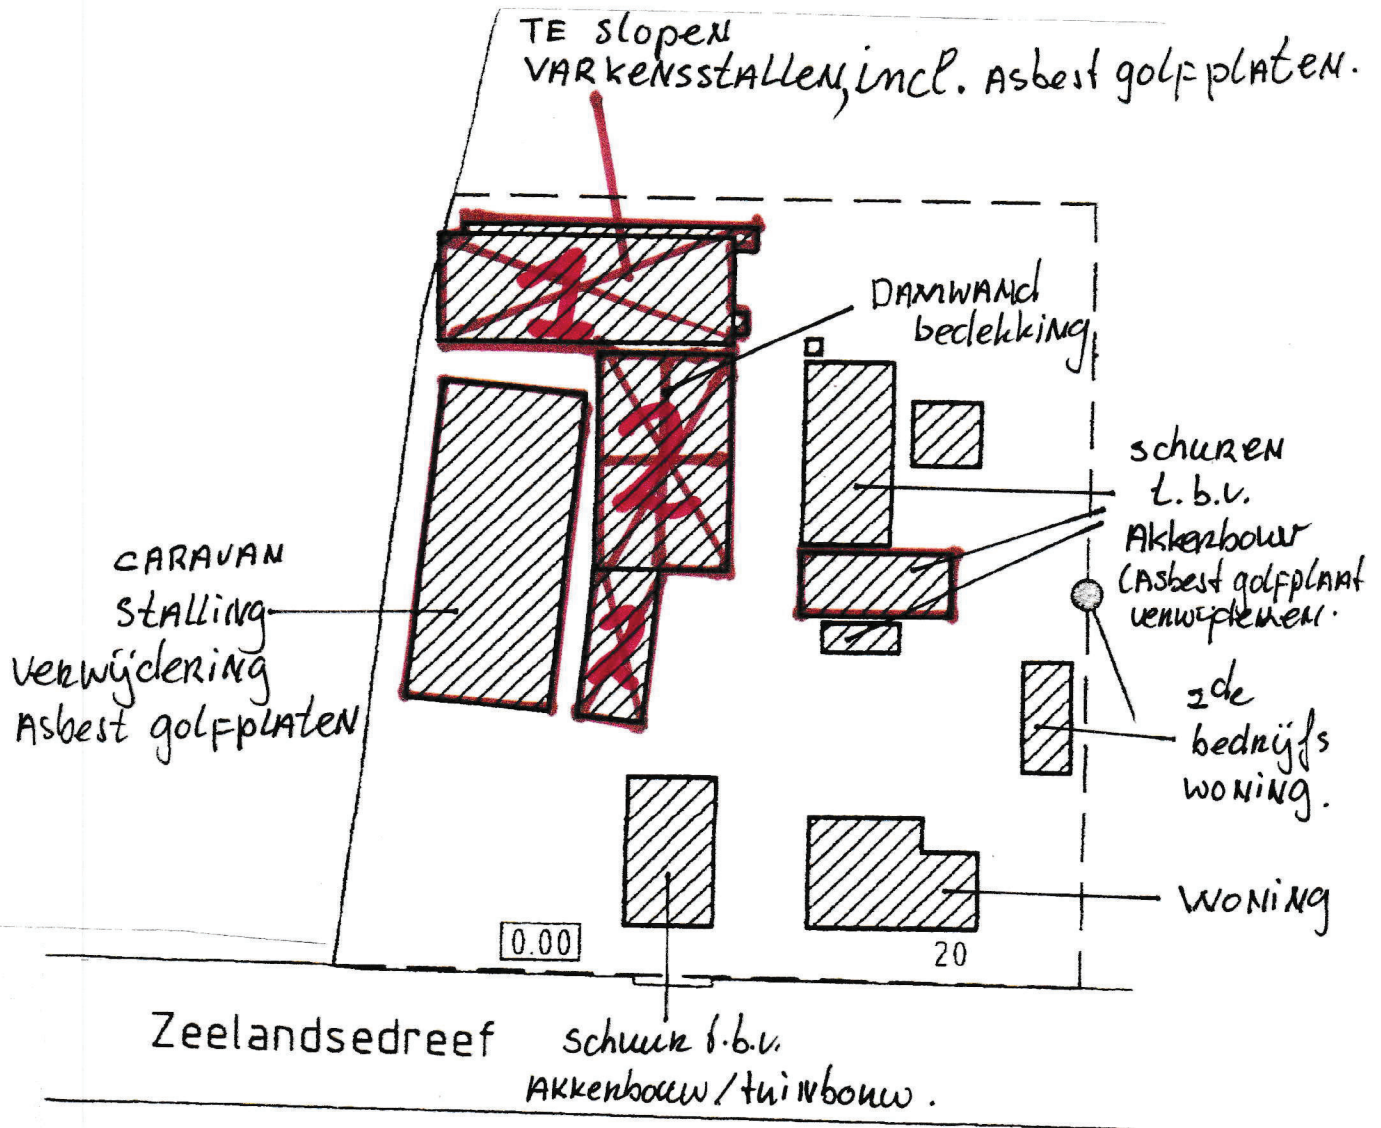 TE slopen
VARKENSSTALLEN, incl. Asbest golfplaten.
1
DAMWAND
bedekking
2
schuren
t.b.v.
Akkerbouw
(Asbest golfplaat
verwijderen.
CARAVAN
stalling
verwijdering
Asbest golfplaten
2de
bedrijfs
woning.
WONING
0.00
20
Zeelandsedreef
schuur t.b.v.
Akkerbouw / tuinbouw.